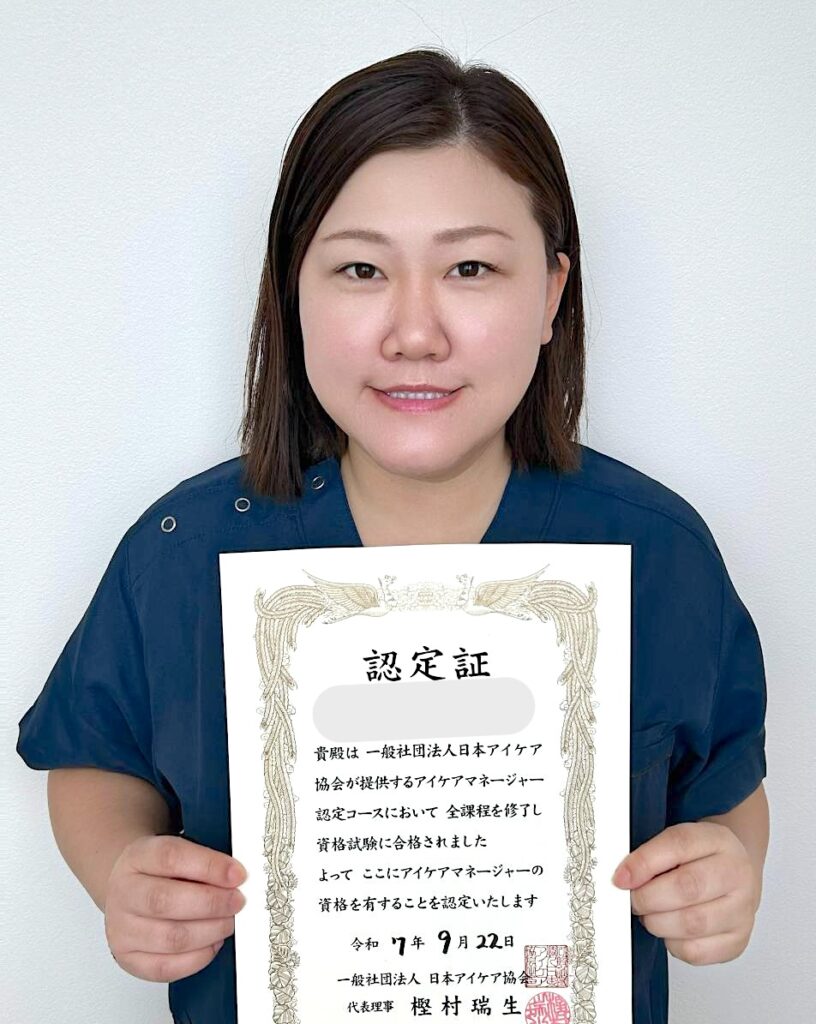 認定証
貴殿は 一般社団法人日本アイケア
協会が提供するアイケアマネージャー
認定コースにおいて 全課程を修了し
資格試験に合格されました
よって ここにアイケアマネージャーの
資格を有することを認定いたします
令和 7年 9月 22日
一般社団法人 日本アイケア協会
代表理事 樫村瑞生